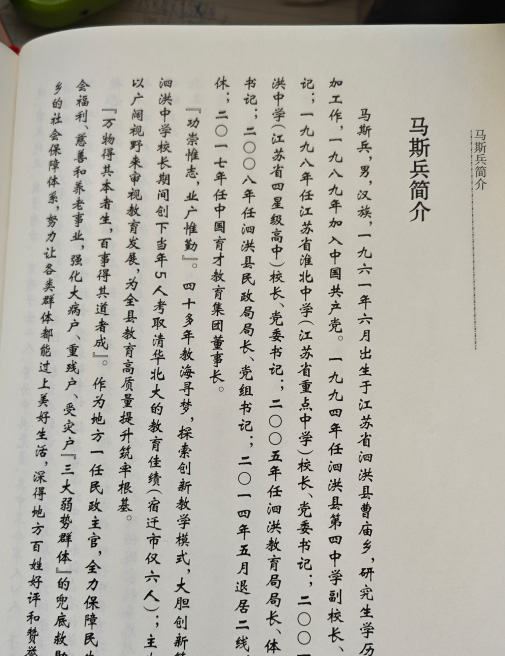 马斯兵简介
马斯兵简介
马斯兵，男，汉族，一九六一年六月出生于江苏省泗洪县曹庙乡，研究生学历
加工作，一九八九年加入中国共产党。一九九四年任泗洪县第四中学副校长、
记；一九九八年任江苏省淮北中学（江苏省重点中学）校长、党委书记；二〇〇
洪中学（江苏省四星级高中）校长、党委书记；二〇〇五年任泗洪教育局局长、体
书记；二〇〇八年任泗洪县民政局局长、党组书记；二〇一四年五月退居二线
休；二〇一七年任中国育才教育集团董事长。
『功崇惟志，业广惟勤』。四十多年教海寻梦，探索创新教学模式，大胆创新管
泗洪中学校长期间创下当年5人考取清华北大的教育佳绩（宿迁市仅六人）；主
以广阔视野来审视教育发展，为全县教育高质量提升筑牢根基。
『万物得其本者生，百事得其道者成』。作为地方一任民政主官，全力保障民生
会福利、慈善和养老事业，强化大病户、重残户、受灾户『三大弱势群体』的兜底救助
乡的社会保障体系，努力让各类群体都能过上美好生活，深得地方百姓好评和赞誉